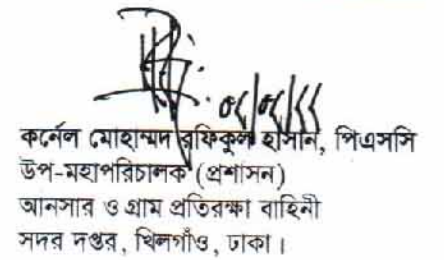 কর্নেল মোহাম্মদ রফিকুল হাসান, পিএসসি
উপ-মহাপরিচালক (প্রশাসন)
আনসার ও গ্রাম প্রতিরক্ষা বাহিনী
সদর দপ্তর, খিলগাঁও, ঢাকা।